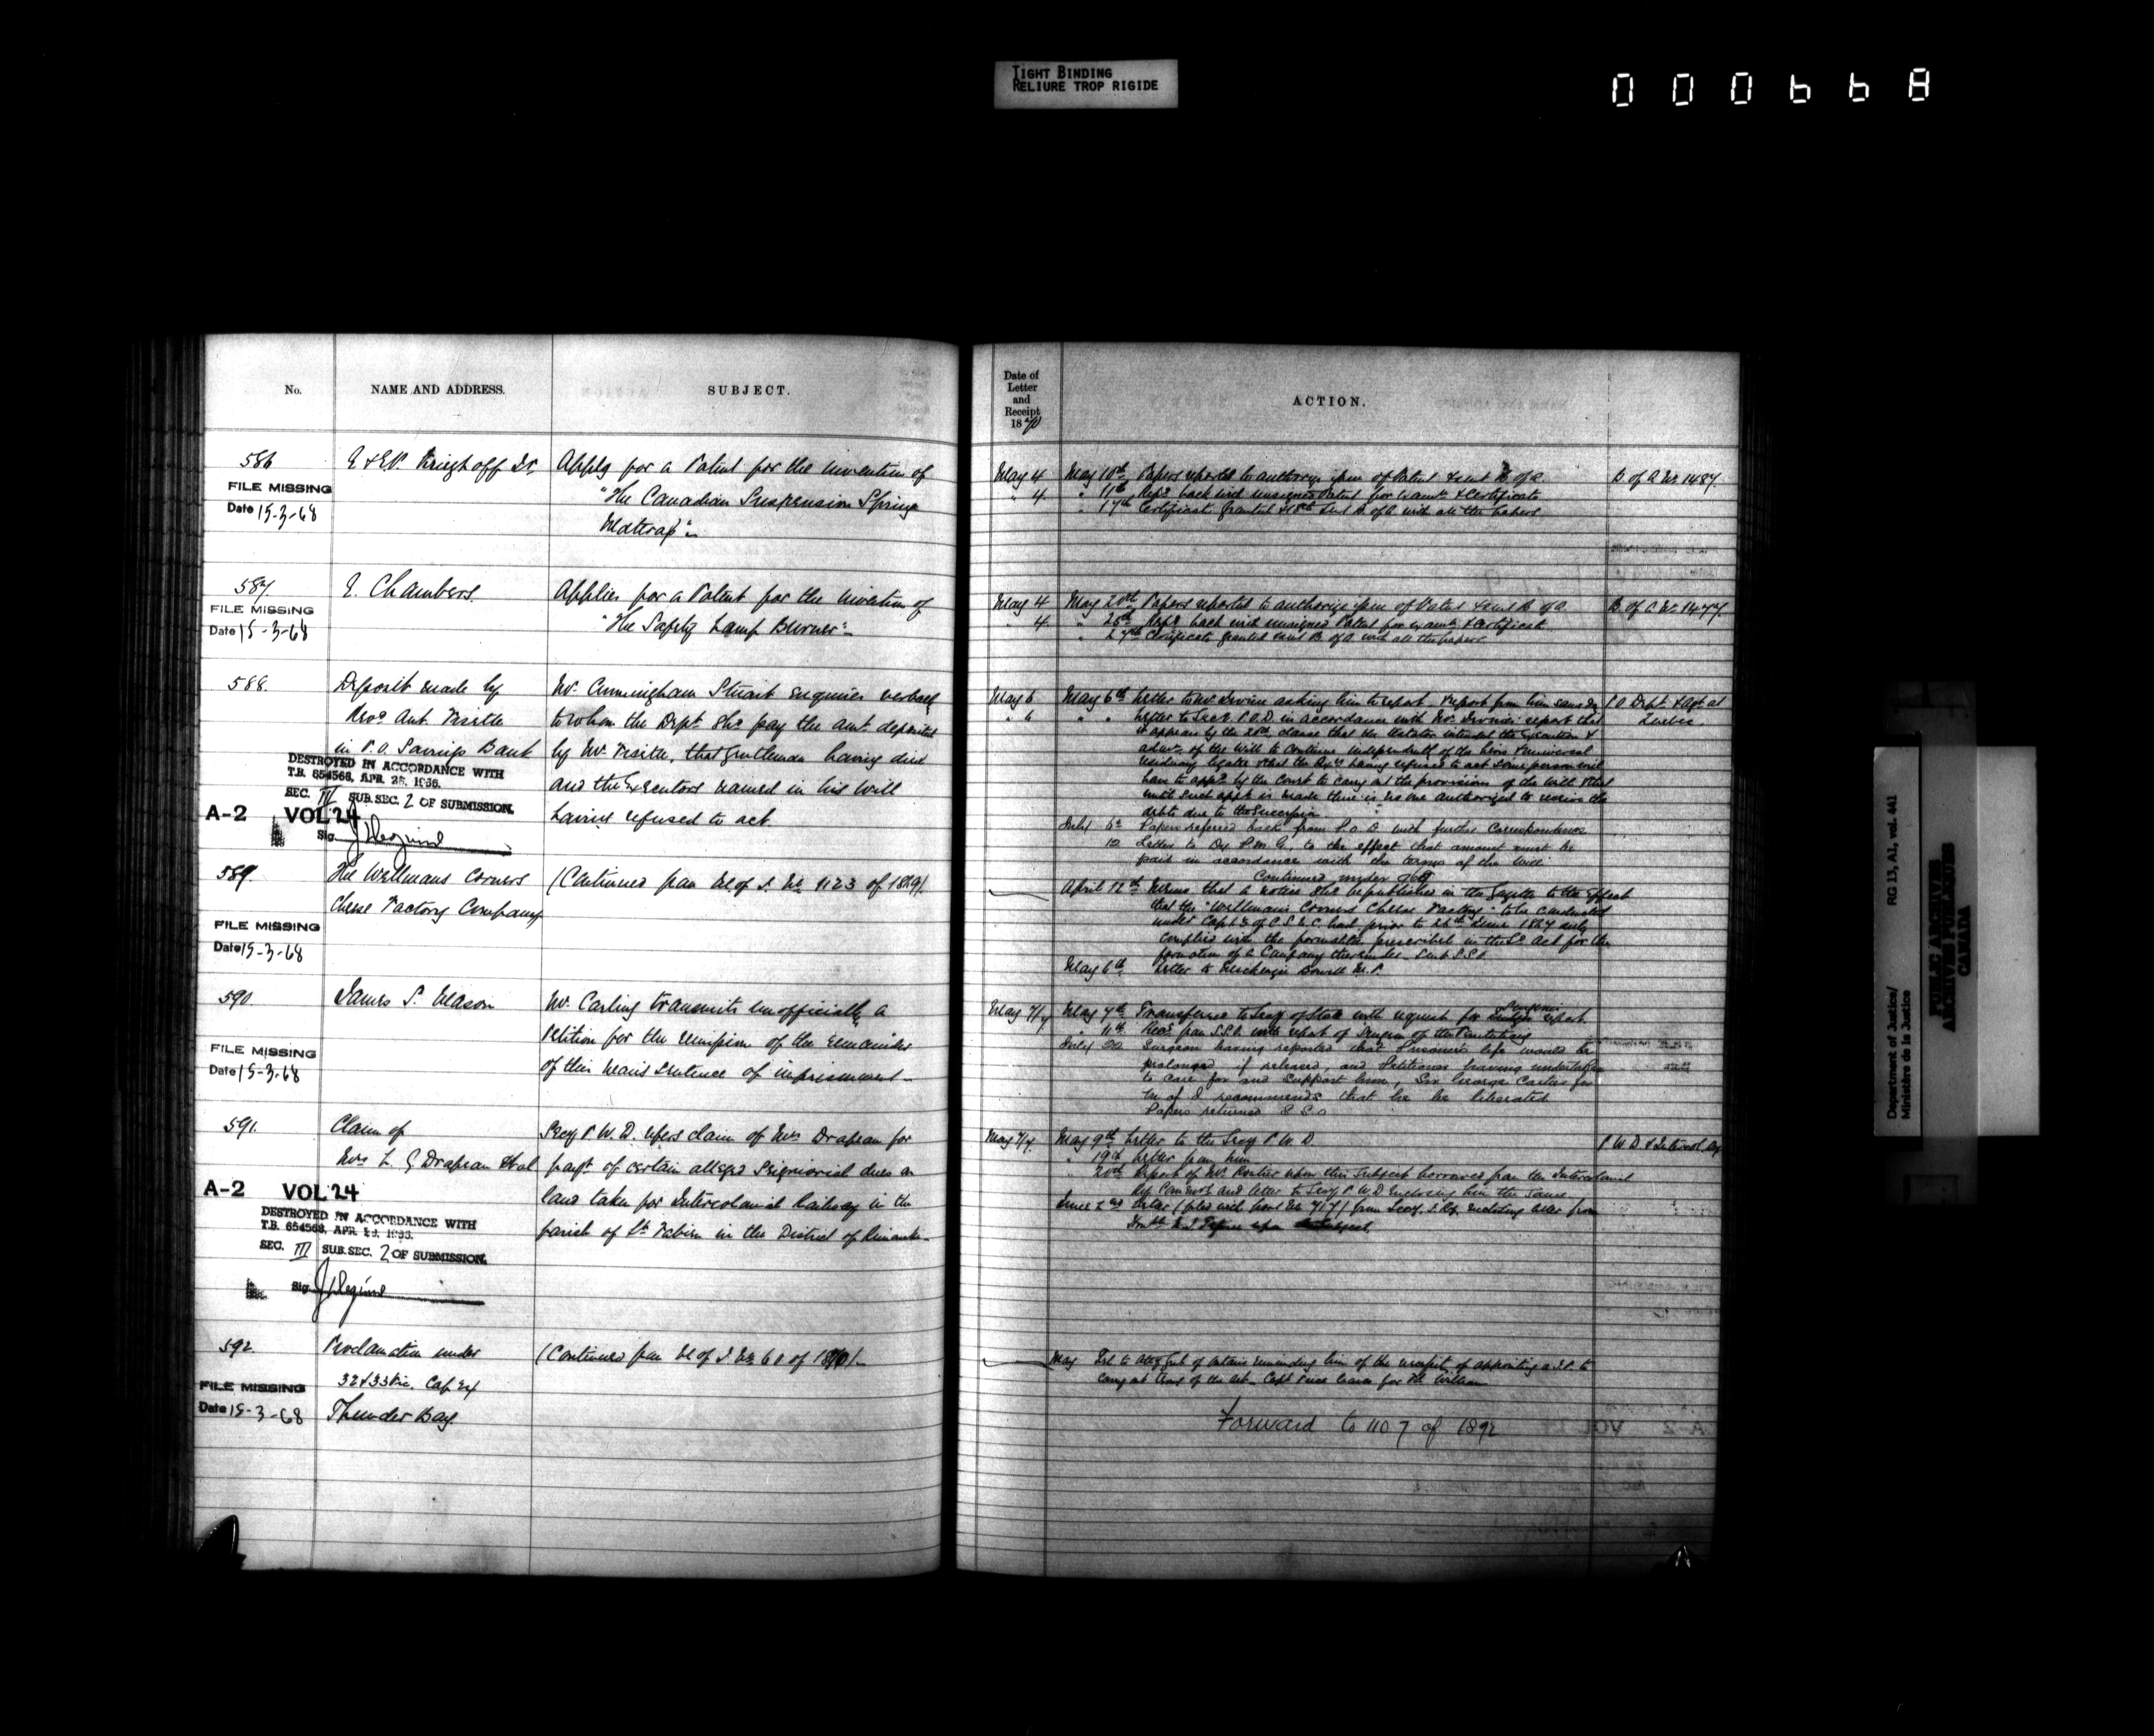 TIGHT BINDING
RELIURE TROP RIGIDE
000668
No.
NAME AND ADDRESS.
SUBJECT.
586
FILE MISSING
Date 15-3-68
E & E.P. Kreighoff Jr.
Apply for a Patent for the invention of
"The Canadian Suspension Spring
Mattrass".
587.
FILE MISSING
Date 15-3-68
E. Chambers.
Applies for a Patent for the invention of
"The Safety Lamp Burner".
588.
Deposit made by
Revd. Ant.
in P.O. Savings Bank
DESTROYED IN ACCORDANCE WITH
T.B. 654568, APR. 1956.
SEC. III SUB.SEC. 2 OF SUBMISSION.
A-2 VOL 24
Sig.
Mr. Cunningham Stuart enquires verbally
to whom the Dept. shd. pay the amt. deposited
by Mr. that gentleman having died
and the Executors named in his will
having refused to act
589.
FILE MISSING
Date 15-3-68
The Wellmans Corners
Cheese Factory Company
(Continued from M of J. No. 1123 of 1869).
590.
FILE MISSING
Date 15-3-68
James S. Mason
Mr. Carling transmits unofficially a
petition for the remission of the remainder
of this man's sentence of imprisonment
591.
Claim of
Mrs. L. G Drapeau et al
A-2 VOL 24
DESTROYED IN ACCORDANCE WITH
T.B. 654568, APR.
SEC. III SUB.SEC. 2 OF SUBMISSION.
Sig.
Secy P.W.D. refers claim of Mrs Drapeau for
payt. of certain alleged Seigniorial dues on
land taken for Intercolonial Railway in the
parish of St. Fabien in the District of Rimouski
592.
FILE MISSING
Date 15-3-68
Proclamation under
32 & 33 Vic. Cap 24
Thunder Bay.
(Continued from M of J. No. 60 of 1870).
Date of
Letter
and
Receipt
1870
ACTION.
May 4 May 10th Papers reported to authorize issue of Patent & sent B. of A. B. of A No. 1487.
" 4 " 11th Recd. back with unsigned Patent for exam. & Certificate
" 17th Certificate granted & 18th sent B. of A with all the papers
May 4 May 20th Papers reported to authorize issue of Patent & sent B. of A. B. of A No. 1477.
" 4 " 25th Recd. back with unsigned Patent for exam. & Certificate
" 27th Certificate granted sent B. of A with all the papers
May 6 May 6th Letter to Mr asking him to report. Report from him same day P.O. Dept. & Agt. at
" 6 " " Letter to Secy. P.O.D. in accordance with Mr. report that Quebec.
it appears by the 20th clause that the testator intended the Execution &
of the Will to continue independently of the heirs & universal
residuary legatee & that the Exrs having refused to act some person will
have to appd. by the Court to carry out the provisions of the Will & that
until such appt. is made there is no one authorized to receive the
debts due to the Succession
July 6th Papers referred back from P.O.D. with further Correspondence
12 Letter to Dy. P.M.G. to the effect that amount must be
paid in accordance with the terms of the Will
Continued under 969
April 12th Memo. that a notice shd. be published in the Gazette to the effect
that the "Wellman's Corners Cheese Factory" to be conducted
under Cap. of C.S.U.C. had, prior to 22nd June 1869 duly
complied with the formalities prescribed in the sd. Act for the
formation of a Company thereunder. Sent S.S.C.
May 6th Letter to Mackenzie Bowell M.P.
May 7/7 May 7th Transferred to Secy of State with request for Surgeon's report.
" 11th Recd. from S.S.C. with report of Surgeon of the Penitentiary
July 22 Surgeon having reported that Prisoner's life would be
prolonged if released, and Petitioner having undertaken
to care for and support him, Sir George Cartier for
M of J recommends that he be liberated
Papers returned S.S.C.
May 7/7 May 9th Letter to the Secy P.W.D. P.W.D. & Intercol. Ry
" 19th Letter from him
" 20th Report of Mr. upon this subject borrowed from the Intercolonial
Rly Comrs. and letter to Secy P.W.D. enclosing him the same.
June 2nd Letter (filed with No. 717) from Secy. I. Ry. enclosing letter from
upon Subject
May Let. to Atty Genl. of Ontario reminding him of the necessity of appointing a J.P. to
carry out terms of the Act. Capt leaves for Ft. William
Forward to 1107 of 1892
Department of Justice/
Ministère de la Justice
RG 13, A1, vol. 441
PUBLIC ARCHIVES
ARCHIVES PUBLIQUES
CANADA